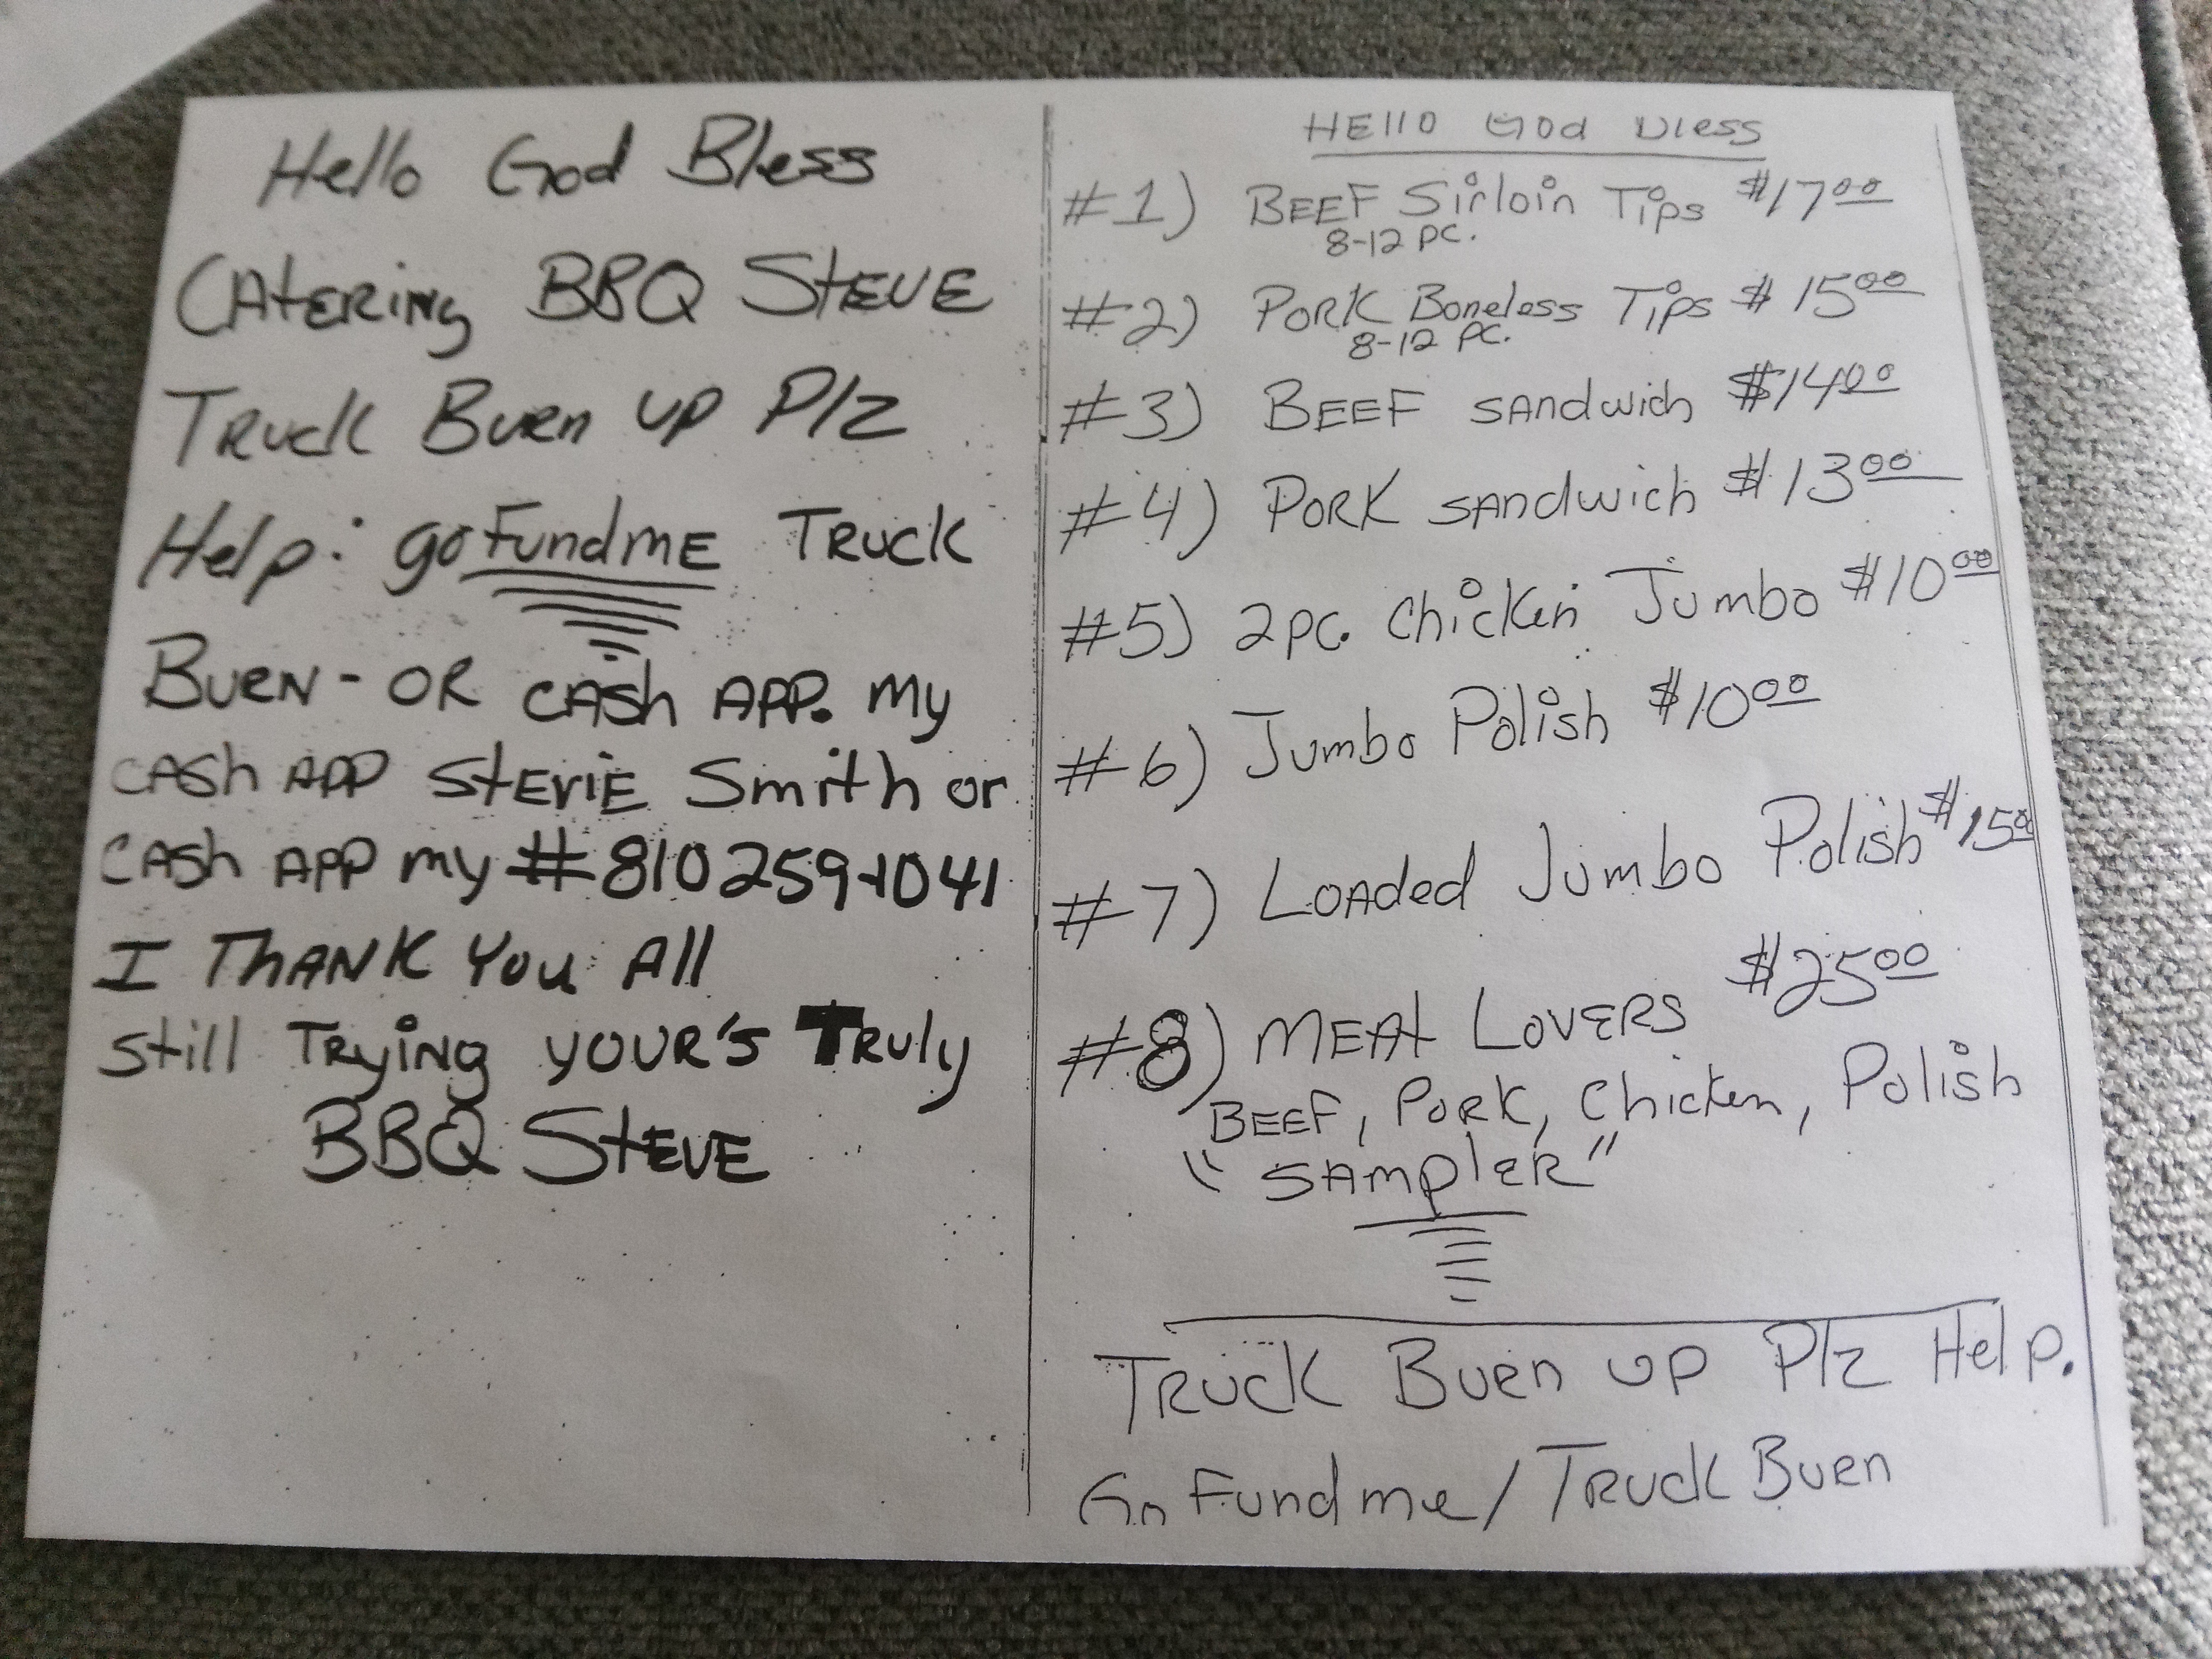 Hello God Bless
CAtERiNg BBQ StEVE
TRuck BuRn up Plz
Help: goFundmE TRuck
BuRN - OR CASh APP. my
CASh APP StEViE Smith or
CASh APP my #810 259-1041
I THANK You All
Still TRyiNg YOUR'S TRuly
BBQ StEVE
HEllO God Bless
#1) BEEF Sirloin Tips $17.00
8-12 PC.
#2) PORK Boneless Tips $15.00
8-12 PC.
#3) BEEF SANdwich $14.00
#4) PORK SANdwich $13.00
#5) 2pc. Chicken Jumbo $10.00
#6) Jumbo Polish $10.00
#7) LOAded Jumbo Polish $15.00
#8) MEAt LOVERS $25.00
BEEF, PORK, Chicken, Polish
"SAmplER"
TRuck BuRn up Plz Help.
Go Fund me/TRuck BuRn